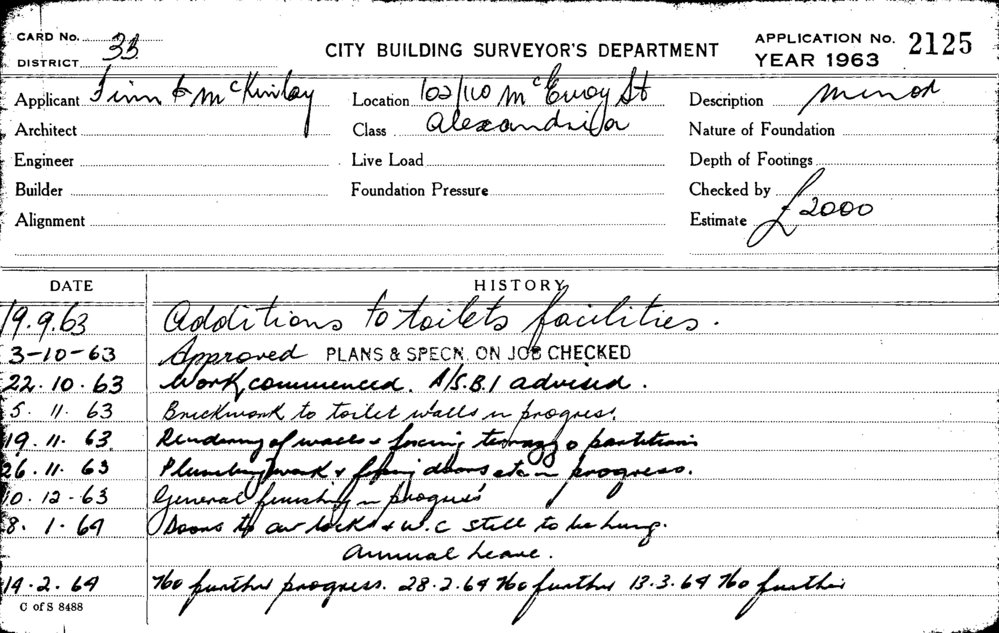 CARD No. 33
DISTRICT
CITY BUILDING SURVEYOR'S DEPARTMENT
APPLICATION No. 2125
YEAR 1963
Applicant Finn & McKinlay
Location 102/110 McEvoy St
Description Minor
Architect
Class Alexandria
Nature of Foundation
Engineer
Live Load
Depth of Footings
Builder
Foundation Pressure
Checked by
Alignment
Estimate £2000
DATE HISTORY
19.9.63 Additions to toilets facilities.
3-10-63 Approved PLANS & SPECN. ON JOB CHECKED
22.10.63 Work commenced. A/S.B.I advised.
5.11.63 Brickwork to toilet walls in progress.
19.11.63. Rendering of walls & terrazzo partitions
26.11.63 Plumbing work & fixing doors etc in progress.
10.12-63 General finishing in progress
8.1.64 Doors to air lock & W.C still to be hung.
Annual Leave.
14.2.64 No further progress. 28.2.64 No further 13.3.64 No further
C of S 8488